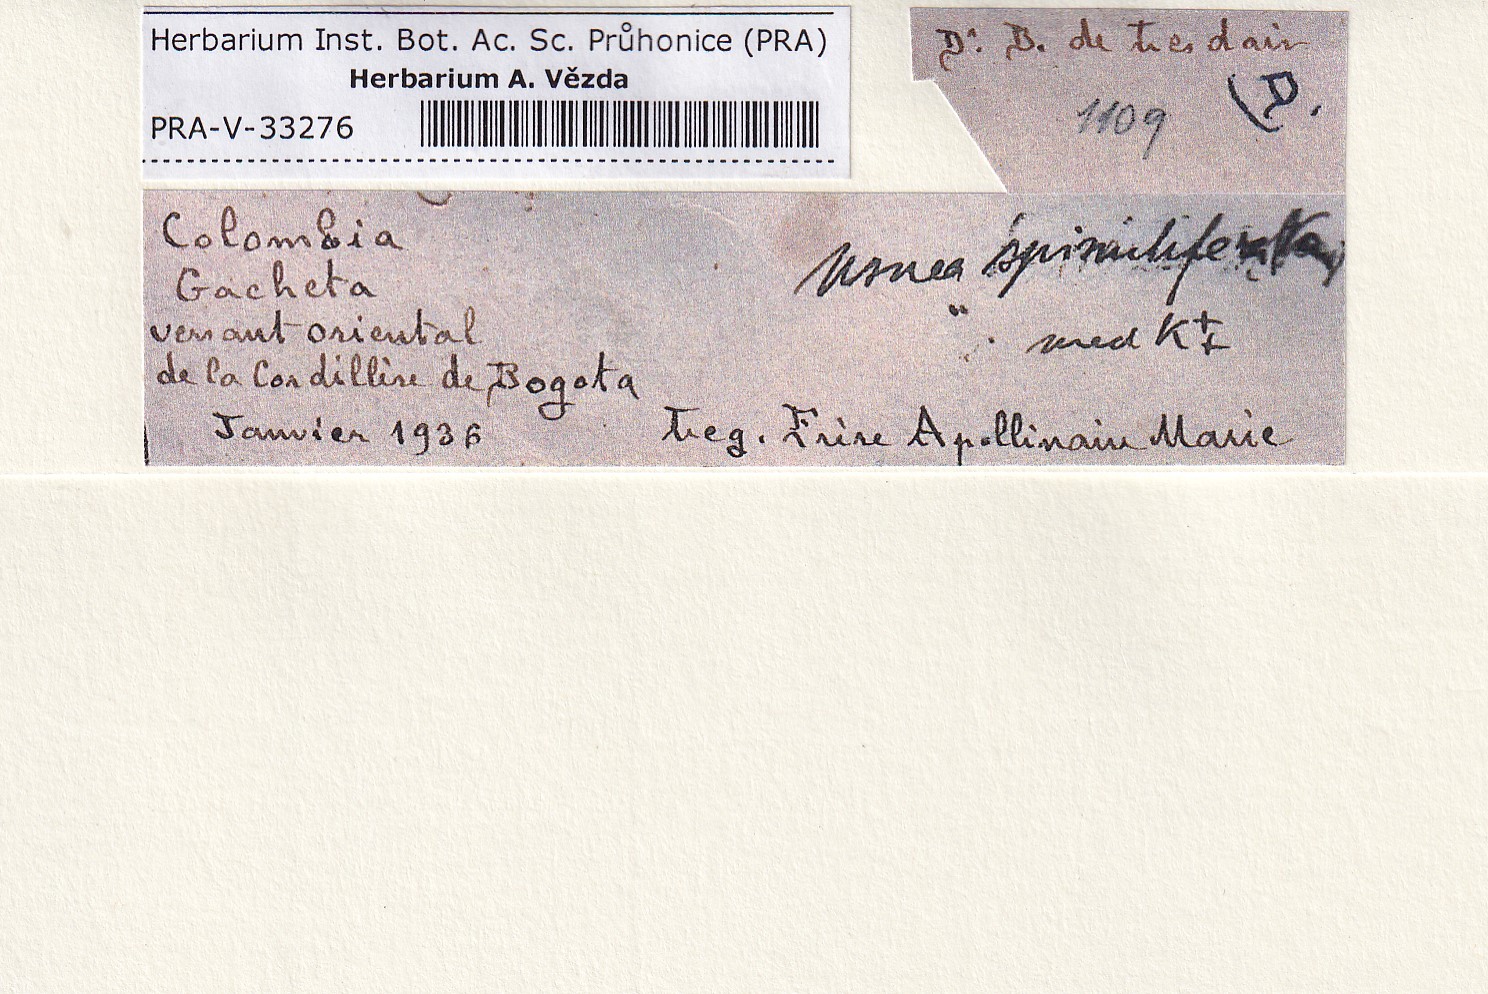 Herbarium Inst. Bot. Ac. Sc. Průhonice (PRA)
Herbarium A. Vězda
PRA-V-33276
Dr. B. de Lesdain
1109
Colombia
Gacheta
versant oriental
de la Cordillère de Bogota
Janvier 1936
Usnea
" med K++
Leg. Frère Apollinaire Marie